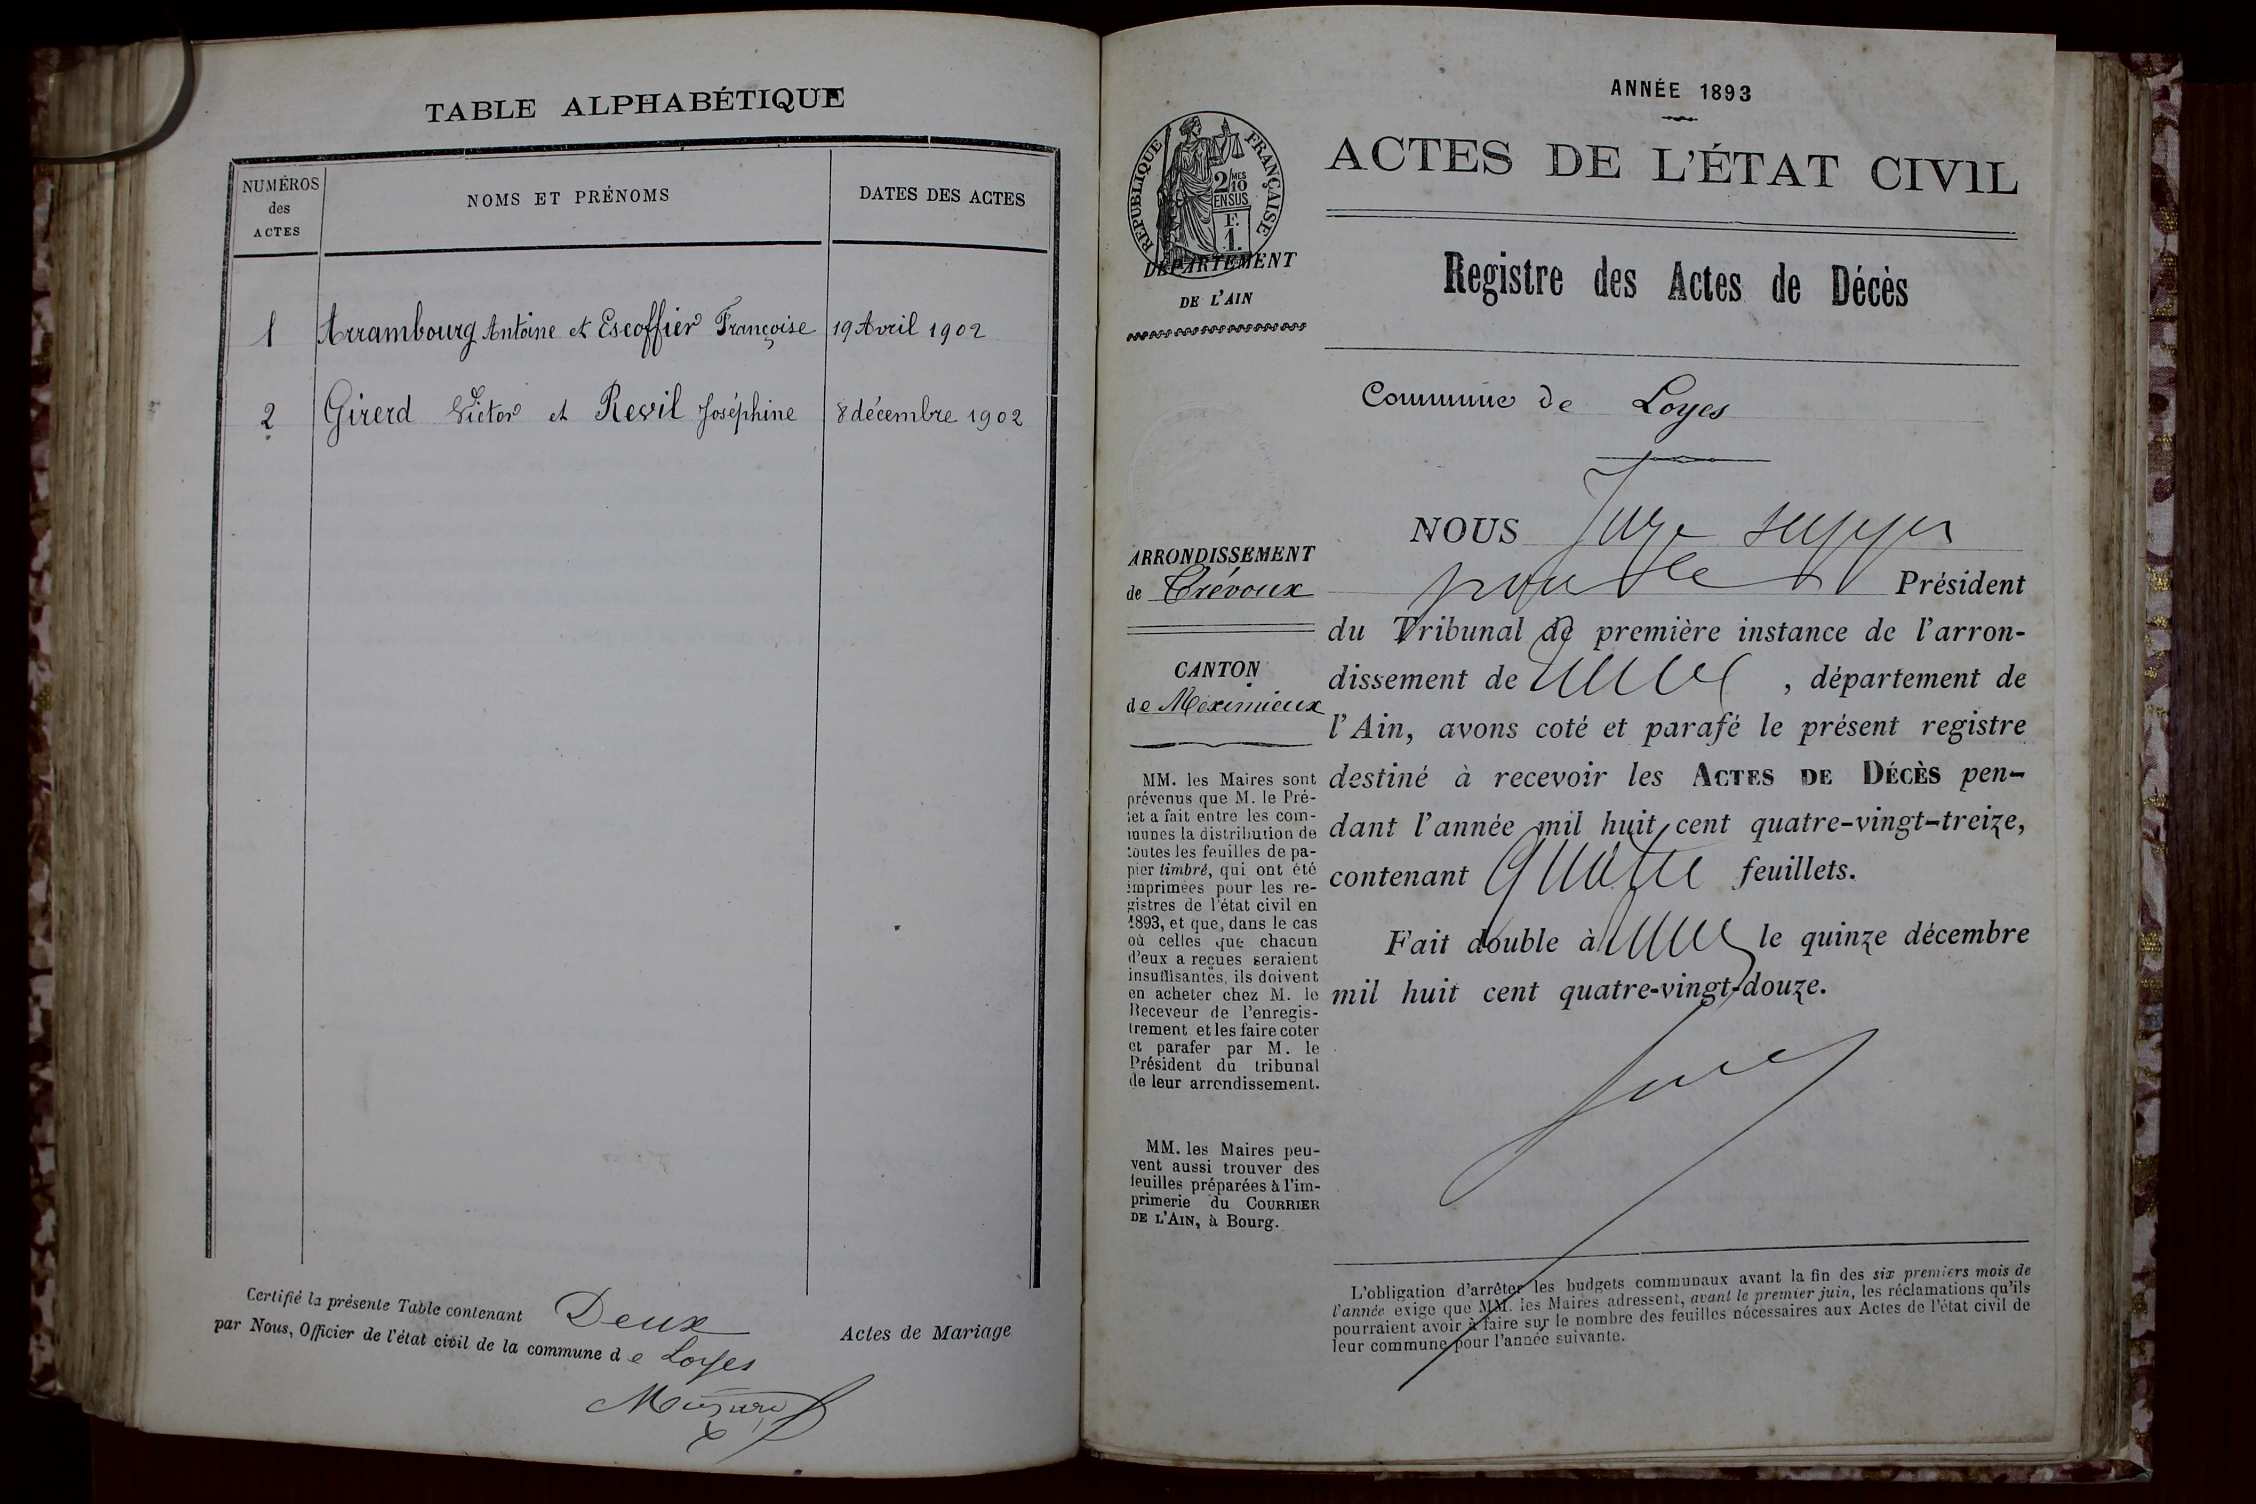 TABLE ALPHABÉTIQUE
NUMÉROS
des
ACTES
NOMS ET PRÉNOMS
DATES DES ACTES
1 Arrambourg Antoine et Escoffier Françoise 19 Avril 1902
2 Girerd Victor et Revil Joséphine 8 décembre 1902
Certifié la présente Table contenant Deux Actes de Mariage
par Nous, Officier de l'état civil de la commune de Loyes
ANNÉE 1893
RÉPUBLIQUE FRANÇAISE
2/10 MES
EN SUS
F.
1.
DÉPARTEMENT
DE L'AIN
ACTES DE L'ÉTAT CIVIL
Registre des Actes de Décès
Commune de Loyes
ARRONDISSEMENT
de Trévoux
CANTON
de Meximieux
MM. les Maires sont
prévenus que M. le Pré-
fet a fait entre les com-
munes la distribution de
toutes les feuilles de pa-
pier timbré, qui ont été
imprimées pour les re-
gistres de l'état civil en
1893, et que, dans le cas
où celles que chacun
d'eux a reçues seraient
insuffisantes, ils doivent
en acheter chez M. le
Receveur de l'enregis-
trement et les faire coter
et parafer par M. le
Président du tribunal
de leur arrondissement.
MM. les Maires peu-
vent aussi trouver des
feuilles préparées à l'im-
primerie du COURRIER
DE L'AIN, à Bourg.
NOUS Juge
Président
du Tribunal de première instance de l'arron-
dissement de , département de
l'Ain, avons coté et parafé le présent registre
destiné à recevoir les ACTES DE DÉCÈS pen-
dant l'année mil huit cent quatre-vingt-treize,
contenant quatre feuillets.
Fait double à le quinze décembre
mil huit cent quatre-vingt-douze.
L'obligation d'arrêter les budgets communaux avant la fin des six premiers mois de
l'année exige que MM. les Maires adressent, avant le premier juin, les réclamations qu'ils
pourraient avoir à faire sur le nombre des feuilles nécessaires aux Actes de l'état civil de
leur commune pour l'année suivante.